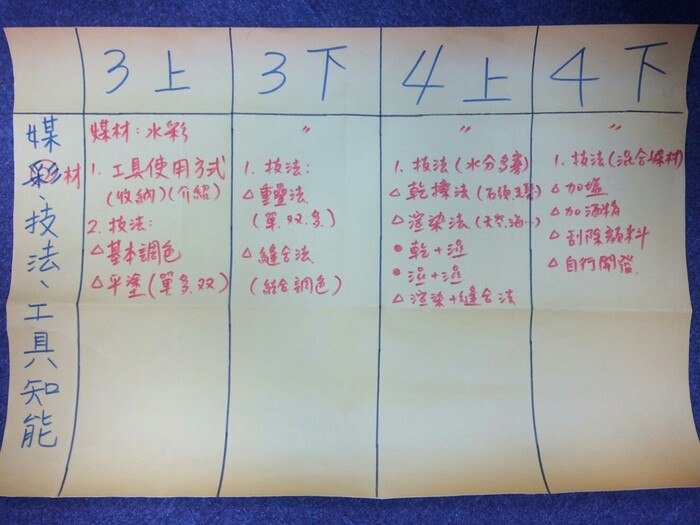 3上
3下
4上
4下
媒材、技法、工具知能
媒材：水彩
1. 工具使用方式
(收納)(介紹)
2. 技法：
△基本調色
△平塗(單.多.双)
〃
1. 技法：
△重疊法
(單.双.多)
△縫合法
(結合調色)
〃
1. 技法(水分多寡)
△乾擦法
△渲染法
●乾+濕
●濕+濕
△渲染+縫合法
〃
1. 技法(混合媒材)
△加塩
△加酒精
△刮除顏料
△自行開發